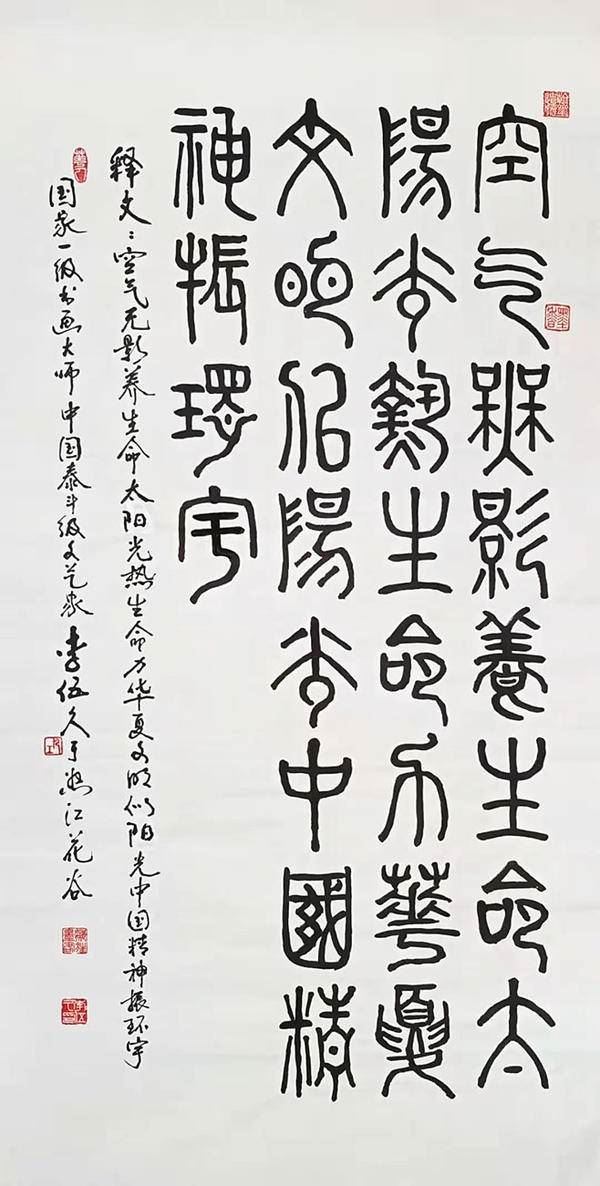 空气無影養生命太
陽光熱生命力華夏
文明似陽光中國精
神振環宇
释文:空气无影养生命太阳光热生命力华夏文明似阳光中国精神振环宇
国家一级书画大师中国泰斗级文艺家李伍久于江花谷